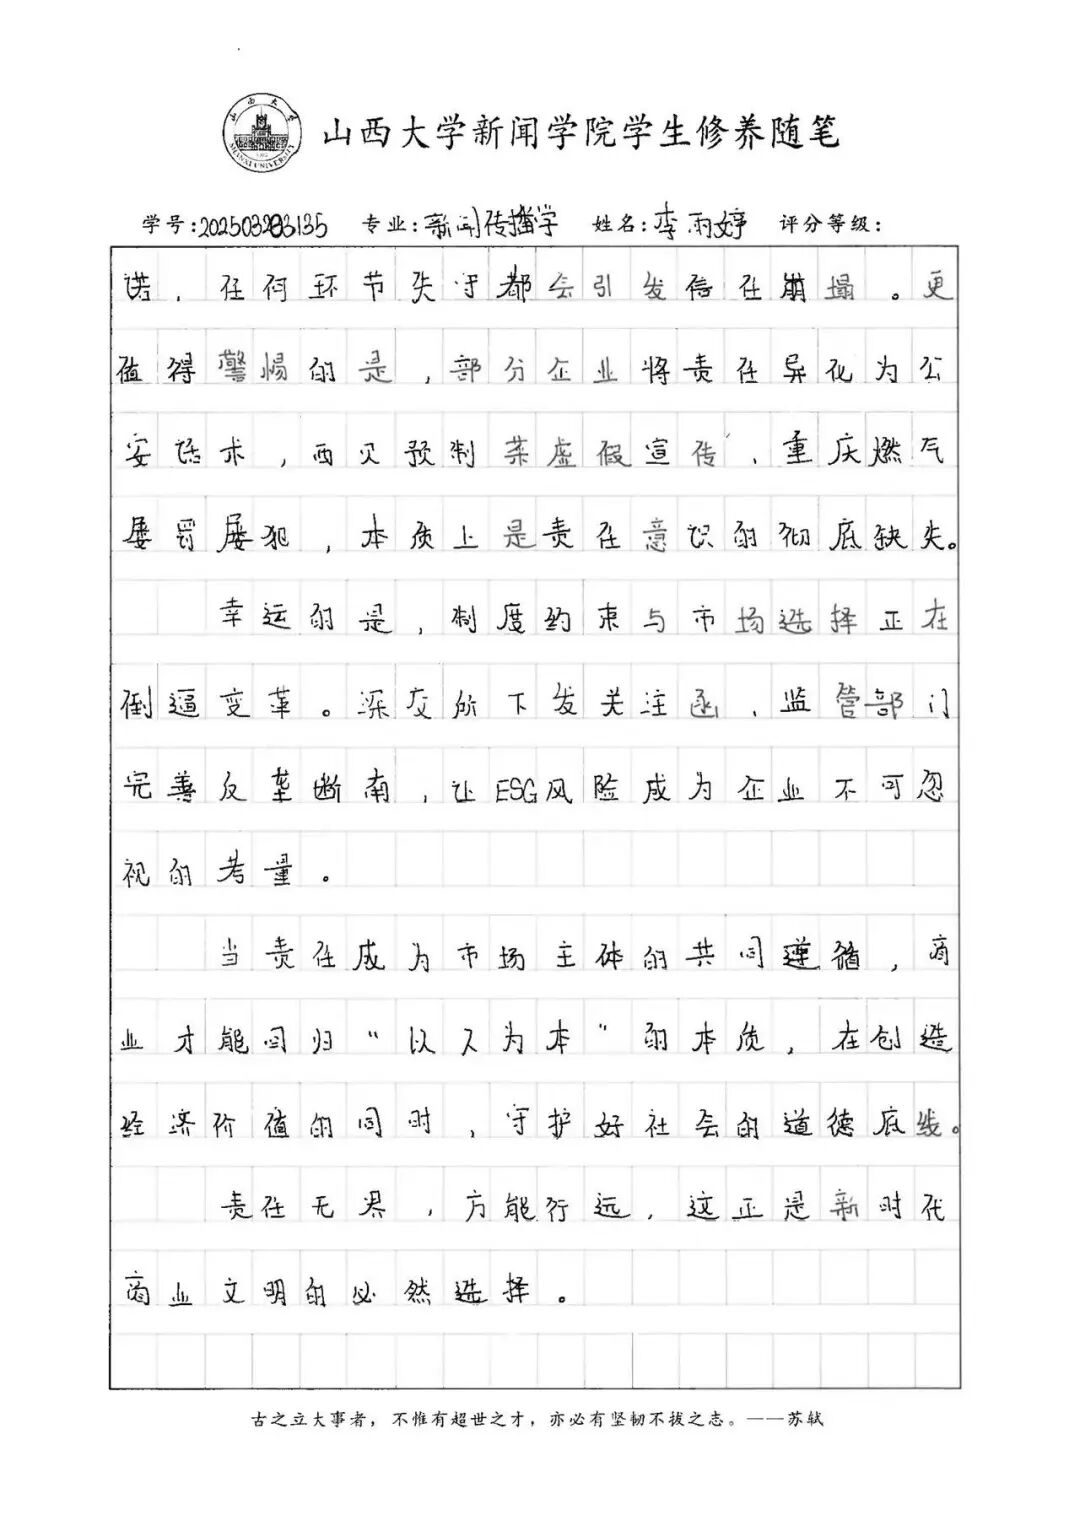 山西大学新闻学院学生修养随笔
学号:202503203135 专业:新闻传播学 姓名:李雨婷 评分等级:
诺，任何环节失守都会引发信任崩塌。更
值得警惕的是，部分企业将责任异化为公
安话术，西贝预制菜虚假宣传、重庆燃气
屡罚屡犯，本质上是责任意识的彻底缺失。
幸运的是，制度约束与市场选择正在
倒逼变革。深交所下发关注函、监管部门
完善反垄断南，让ESG风险成为企业不可忽
视的考量。
当责任成为市场主体的共同遵循，商
业才能回归“以人为本”的本质，在创造
经济价值的同时，守护好社会的道德底线。
责任无界，方能行远，这正是新时代
商业文明的必然选择。
古之立大事者，不惟有超世之才，亦必有坚韧不拔之志。——苏轼